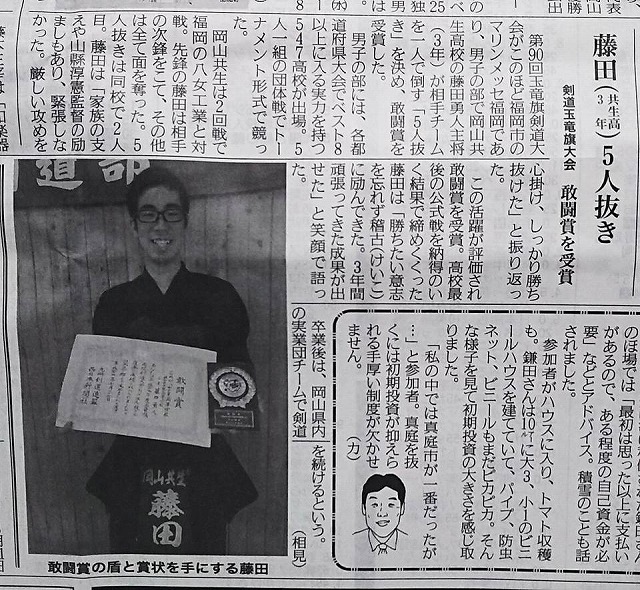 藤田(共生高3年)5人抜き
剣道玉竜旗大会 敢闘賞を受賞
第90回玉竜旗剣道大
会がこのほど福岡市の
マリンメッセ福岡であ
り、男子の部で岡山共
生高校の藤田勇人主将
(3年)が相手チーム
を一人で倒す「5人抜
き」を決め、敢闘賞を
受賞した。
男子の部には、各都
道府県大会でベスト8
以上に入る実力を持つ
547校が出場。5
人一組の団体戦でトー
ナメント形式で競っ
岡山共生は2回戦で
福岡の八女工業と対
戦。先鋒の藤田は相手
の次鋒をこて、その他
は全て面を奪った。5
人抜きは同校で2人
目。藤田は「家族の支
えや山縣淳憲監督の励
ましもあり、緊張しな
かった。厳しい攻めを
心掛け、しっかり勝ち
抜けた」と振り返っ
た。
この活躍が評価され
敢闘賞を受賞。高校最
後の公式戦を納得のい
く結果で締めくくった
藤田は「勝ちたい意志
を忘れず稽古(けいこ)
に励んできた。3年間
頑張ってきた成果が出
せた」と笑顔で語っ
た。
卒業後は、岡山県内
の実業団チームで剣道
を続けるという。
(相見)
敢闘賞の盾と賞状を手にする藤田
道部
敢闘賞
岡山共生
藤田
のほ場では「最初は思った以上に支払い
があるので、ある程度の自己資金が必
要」などとアドバイス。積雪のことも話
されました。
参加者がハウスに入り、トマト収穫
も。鎌田さんは10㌃に大3、小1のビニ
ールハウスを建てていて、パイプ、防虫
ネット、ビニールもまだピカピカ。そん
な様子を見て初期投資の大きさを感じ取
りました。
「私の中では真庭市が一番だったが
…」と参加者。真庭を抜
くには初期投資が抑えら
れる手厚い制度が欠かせ
ません。
(カ)